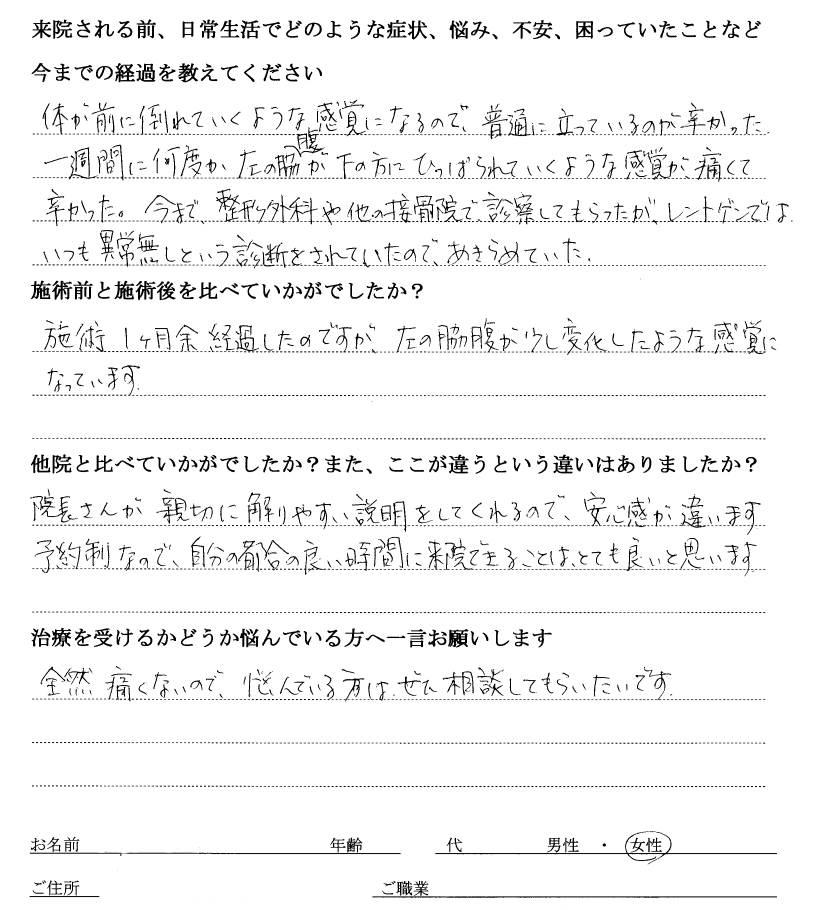 来院される前、日常生活でどのような症状、悩み、不安、困っていたことなど
今までの経過を教えてください
体が前に倒れていくような感覚になるので、普通に立っているのが辛かった
一週間に何度か左の脇腹が下の方にひっぱられていくような感覚が痛くて
辛かった。今まで、整形外科や他の接骨院で、診察してもらったが、レントゲンでは
いつも異常無しという診断をされていたので、あきらめていた.
施術前と施術後を比べていかがでしたか？
施術1ヶ月余経過したのですが、左の脇腹が少し変化したような感覚に
なっています.
他院と比べていかがでしたか？また、ここが違うという違いはありましたか？
院長さんが親切に解りやすい説明をしてくれるので、安心感が違います
予約制なので、自分の都合の良い時間に来院できることは、とても良いと思います
治療を受けるかどうか悩んでいる方へ一言お願いします
全然痛くないので、悩んでいる方は、ぜひ相談してもらいたいです.
お名前 年齢 代 男性 ・ 女性
ご住所 ご職業